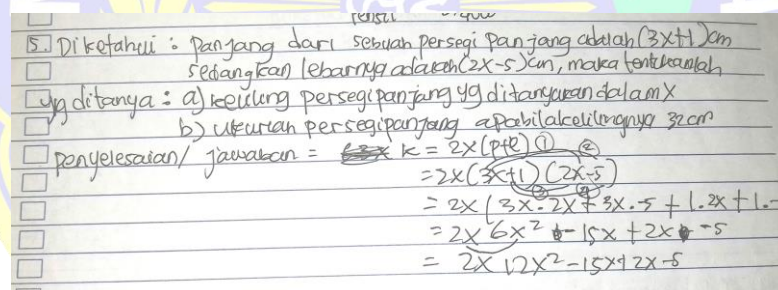 5. Diketahui : Panjang dari sebuah persegi panjang adalah (3x+1)cm
sedangkan lebarnya adalah (2x-5)cm, maka tentukanlah
yg ditanya : a) keliling persegi panjang yg ditanyakan dalam x
b) ukuran persegipanjang apabila kelilingnya 32 cm
penyelesaian / jawaban = K = 2x(p+l) ① ②
=2x(3x+1)(2x-5)
③ ④
= 2x(3x.2x+3x.-5 + 1.2x + 1.-
= 2x 6x² - 15x + 2x -5
= 2x 12x²-15x+2x-5